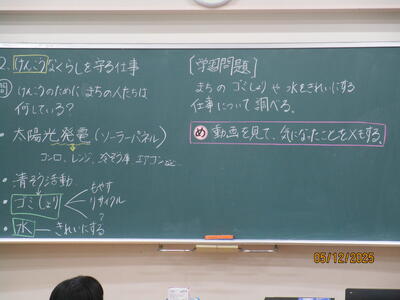 2. けんこうなくらしを守る仕事
問 けんこうのために まちの人たちは
何している？
・太陽光発電（ソーラーパネル）
コンロ、レンジ、冷ぞう庫 エアコンなど
・清そう活動
・ゴミしょり
もやす
リサイクル
？
・水 ― きれいにする
[学習問題]
まちの ゴミしょりや 水をきれいにする
仕事について 調べる。
め 動画を見て、気になったことをメモする。
05/12/2025